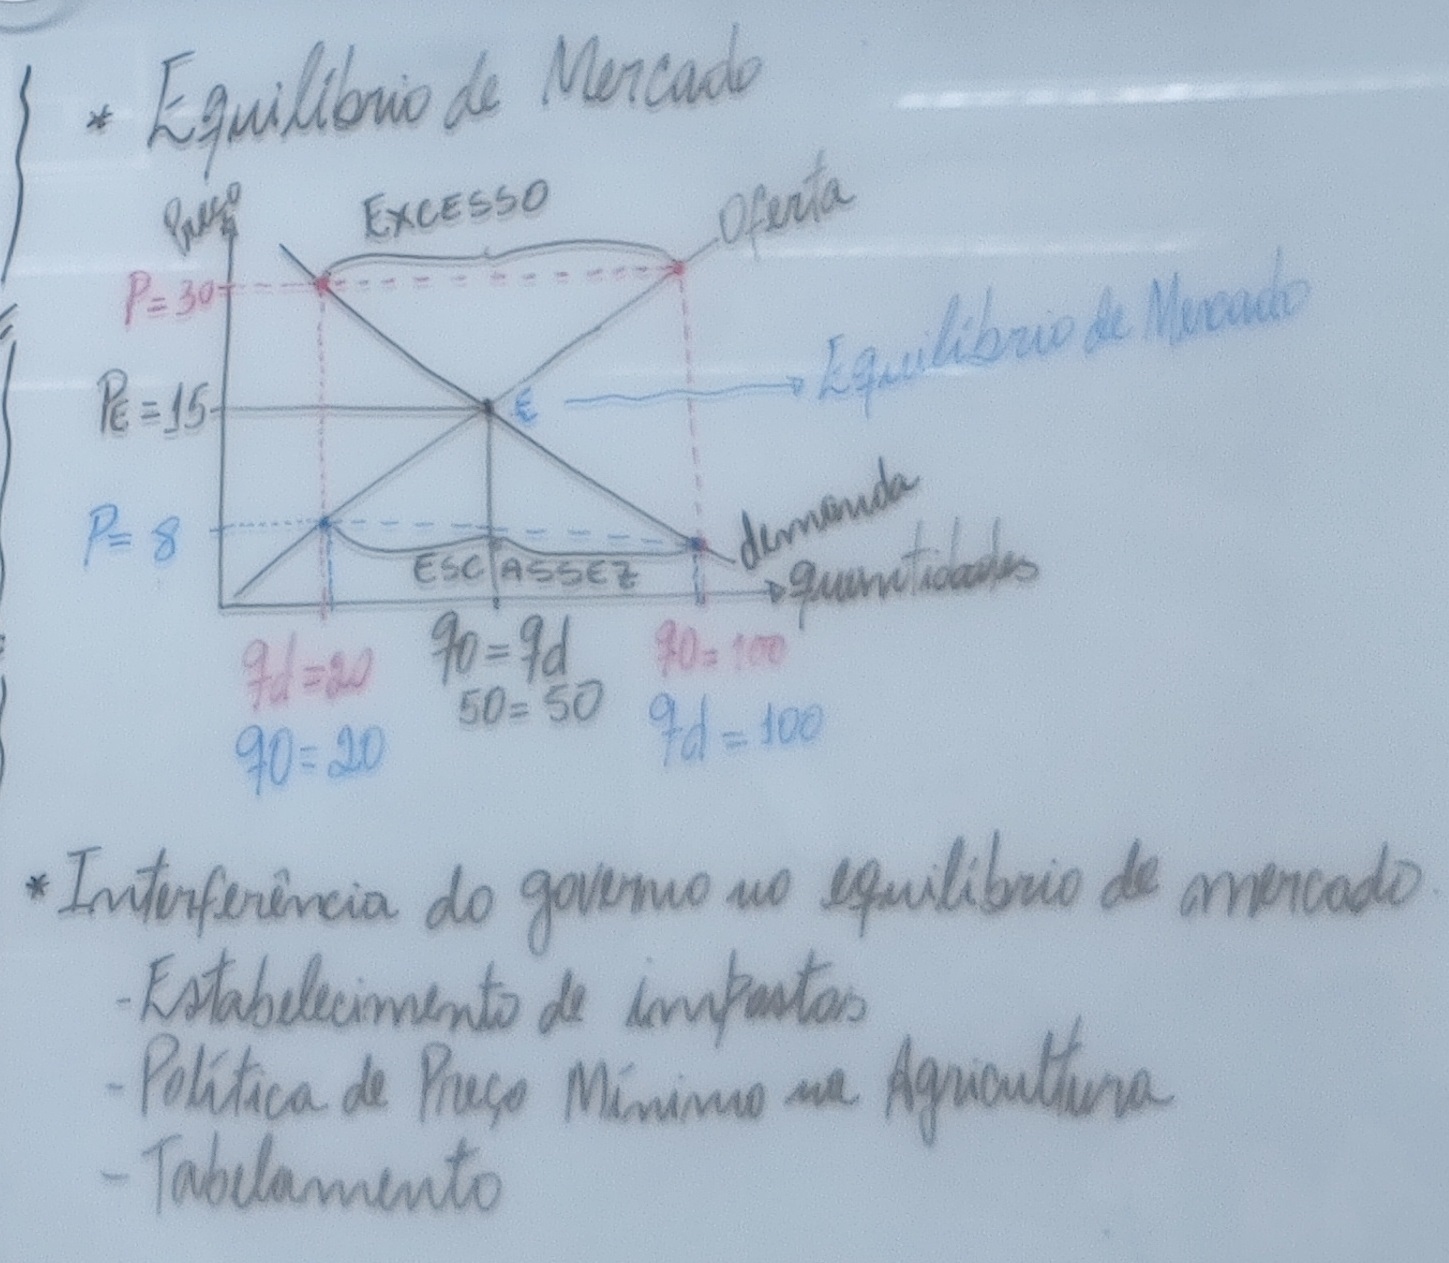 * Equilíbrio de Mercado
Preço
EXCESSO
Oferta
P=30
Equilíbrio de Mercado
PE=15
E
P=8
demanda
ESCASSEZ
quantidades
qd=20
qo=qd
qo=100
50=50
qo=20
qd=100
* Interferência do governo no equilíbrio de mercado.
- Estabelecimento de impostos
- Política de Preço Mínimo na Agricultura
- Tabelamento